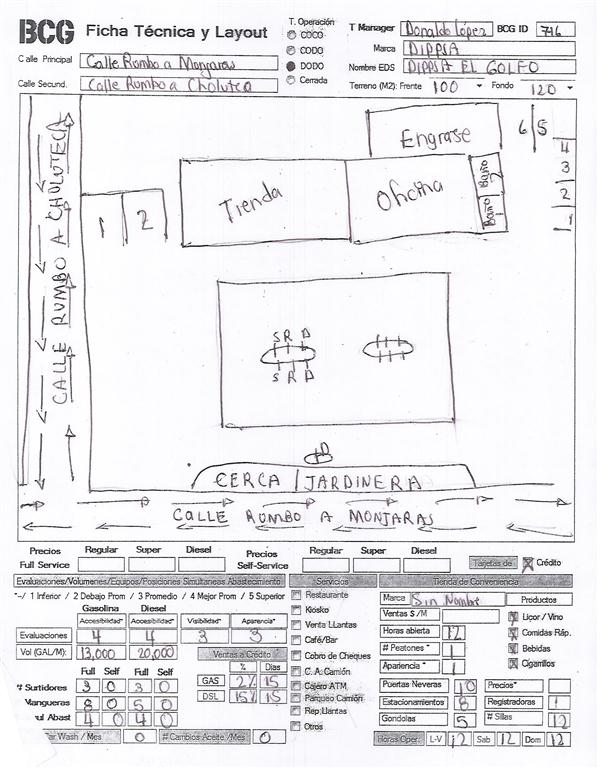 BCG Ficha Técnica y Layout
T. Operación
COCO
CODO
DODO
Cerrada
T Manager Donaldo López BCG ID 746
Marca DIPPSA
Nombre EDS DIPPSA EL GOLFO
Terreno (M2): Frente 100 Fondo 120
Calle Principal Calle Rumbo a Monjaras
Calle Secund. Calle Rumbo a Choluteca
CALLE RUMBO A CHOLUTECA
Engrase
6 5
4
3
2
1
1 2
Tienda
Oficina
Baño 2
Baño 1
S R D
S R D
D
CERCA / JARDINERA
CALLE RUMBO A MONJARAS
Precios Regular Super Diesel Precios Regular Super Diesel
Full Service Self-Service Tarjetas de Crédito
Evaluaciones/Volumenes/Equipos/Posiciones Simultaneas Abastecimiento
*-/ 1 Inferior / 2 Debajo Prom / 3 Promedio / 4 Mejor Prom / 5 Superior
Gasolina Diesel
Accesibilidad* Accesibilidad* Visibilidad* Apariencia*
Evaluaciones 4 4 3 3
Vol (GAL/M): 13,000 20,000
Ventas a Crédito
% Dias
GAS 2% 15
DSL 15% 15
Full Self Full Self
# Surtidores 3 0 3 0
Mangueras 8 0 5 0
Abast 4 0 4 0
Car Wash / Mes 0 # Cambios Aceite /Mes 0
Servicios
Restaurante
Kiosko
Venta LLantas
Café/Bar
Cobro de Cheques
C. A. Camión
Cajero ATM
Parqueo Camión
Rep.Llantas
Otros
Tienda de Conveniencia
Marca Sin Nombre Productos
Ventas $ /M
Horas abierta 12
# Peatones * 1
Apariencia * 1
Liçor / Vino
Comidas Ráp.
Bebidas
Cigarrillos
Puertas Neveras 10 Precios*
Estacionamientos 8 Registradoras 1
Gondolas 5 # Sillas 12
Horas Oper. L-V 12 Sab 12 Dom 12